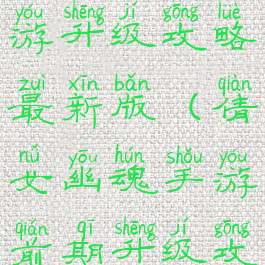 yóu shēng jí gōng lüè
游升级攻略
zuì xīn bǎn qiàn
最新版(倩
nǚ yōu hún shǒu yóu
女幽魂手游
qián qī shēng jí gōng
前期升级攻